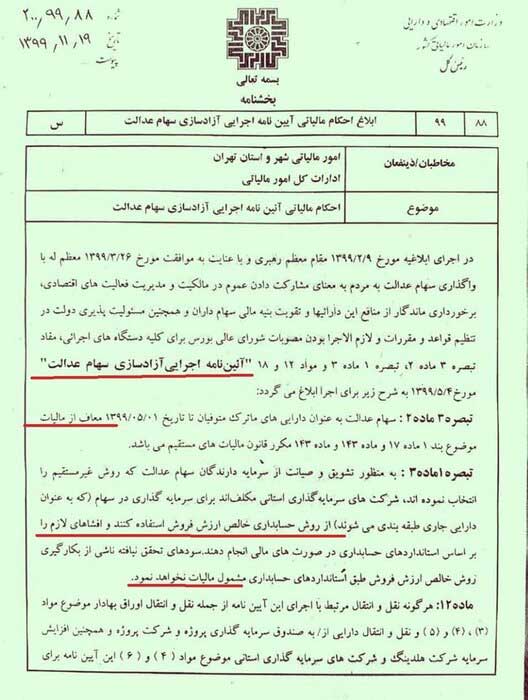 وزارت امور اقتصادی و دارایی
سازمان امور مالیاتی کشور
رئیس کل
شماره ۲۰۰,۹۹,۸۸
تاریخ ۱۳۹۹,۱۱,۱۹
پیوست
بسمه تعالی
بخشنامه
۸۸ ۹۹ ابلاغ احکام مالیاتی آیین نامه اجرایی آزادسازی سهام عدالت س
مخاطبان/ذینفعان
امور مالیاتی شهر و استان تهران
ادارات کل امور مالیاتی
موضوع احکام مالیاتی آئین نامه اجرایی آزادسازی سهام عدالت
در اجرای ابلاغیه مورخ ۱۳۹۹/۲/۹ مقام معظم رهبری و با عنایت به موافقت مورخ ۱۳۹۹/۳/۲۶ معظم له با
واگذاری سهام عدالت به مردم به معنای مشارکت دادن عموم در مالکیت و مدیریت فعالیت های اقتصادی،
برخورداری ماندگار از منافع این دارائیها و تقویت بنیه مالی سهام داران و همچنین مسئولیت پذیری دولت در
تنظیم قواعد و مقررات و لازم الاجرا بودن مصوبات شورای عالی بورس برای کلیه دستگاه های اجرائی، مفاد
تبصره ۳ ماده ۲، تبصره ۱ ماده ۳ و مواد ۱۲ و ۱۸ "آئین‌نامه اجرایی آزادسازی سهام عدالت"
مورخ ۱۳۹۹/۵/۴ به شرح زیر برای اجرا ابلاغ می گردد:
تبصره۳ ماده۲: سهام عدالت به عنوان دارایی های ماترک متوفیان تا تاریخ ۱۳۹۹/۰۵/۰۱ معاف از مالیات
موضوع بند ۱ ماده ۱۷ و ماده ۱۴۳ و ماده ۱۴۳ مکرر قانون مالیات های مستقیم می باشد.
تبصره۱ماده۳: به منظور تشویق و صیانت از سرمایه دارندگان سهام عدالت که روش غیرمستقیم را
انتخاب نموده اند، شرکت های سرمایه‌گذاری استانی مکلف‌اند برای سرمایه گذاری در سهام (که به عنوان
دارایی جاری طبقه بندی می شوند) از روش حسابداری خالص ارزش فروش استفاده کنند و افشاهای لازم را
بر اساس استانداردهای حسابداری در صورت های مالی انجام دهند.سودهای تحقق نیافته ناشی از بکارگیری
روش خالص ارزش فروش طبق استانداردهای حسابداری مشمول مالیات نخواهد نمود.
ماده۱۲: هرگونه نقل و انتقال مرتبط با اجرای این آیین نامه از جمله نقل و انتقال اوراق بهادار موضوع مواد
(۳) ، (۴) و (۵) و نقل و انتقال دارایی از/ به صندوق سرمایه گذاری پروژه و شرکت پروژه و همچنین افزایش
سرمایه شرکت هلدینگ و شرکت های سرمایه گذاری استانی موضوع مواد (۴) و (۶) این آیین نامه برای